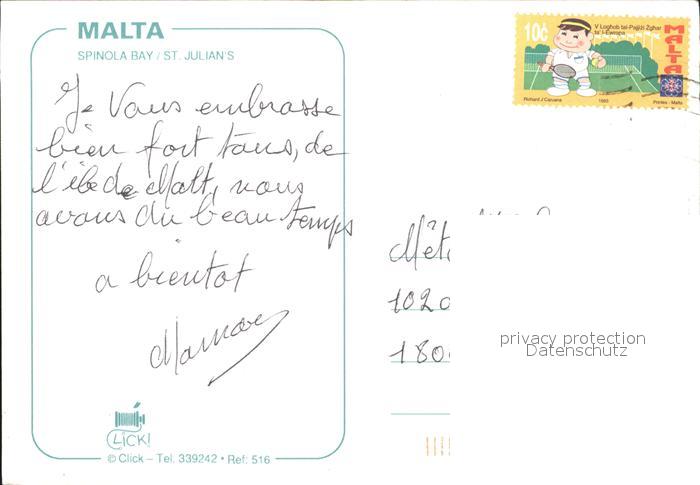 MALTA
SPINOLA BAY / ST. JULIAN'S
Je Vous embrasse
bien fort tous, de
l'île de Malt, nous
avons du beau temps
a bientot
10¢
V Logħob tal-Pajjiżi Żgħar
ta' l-Ewropa
MALTA
Richard J Caruana
1993
Printex - Malta
102
180
privacy protection
Datenschutz
CLICK!
© Click – Tel. 339242 • Ref: 516